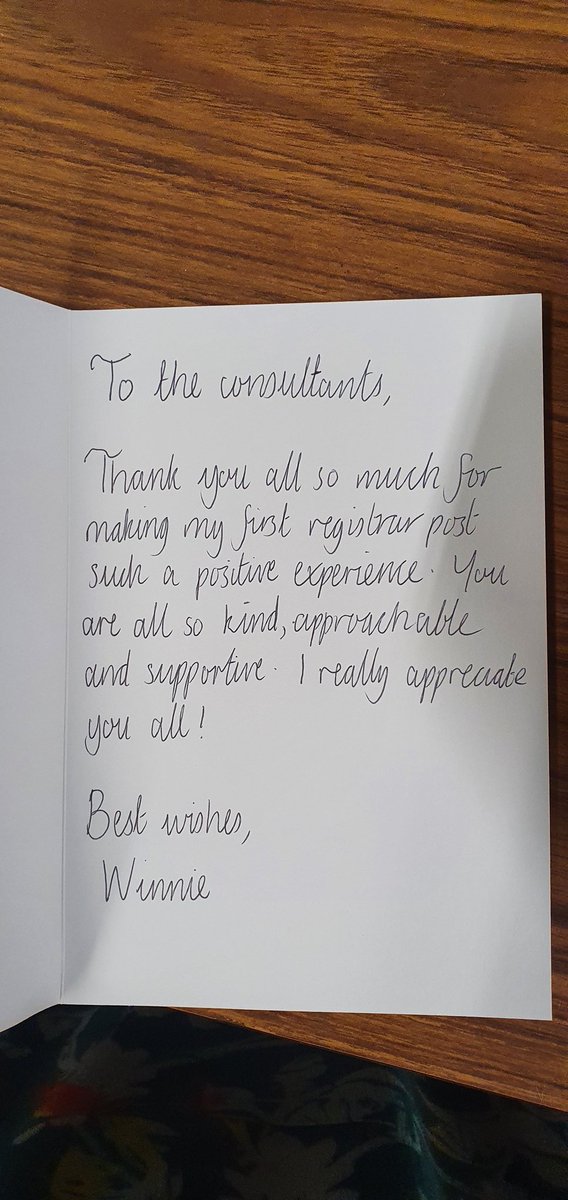 To the consultants,
Thank you all so much for
making my first registrar post
such a positive experience. You
are all so kind, approachable
and supportive. I really appreciate
you all!
Best wishes,
Winnie